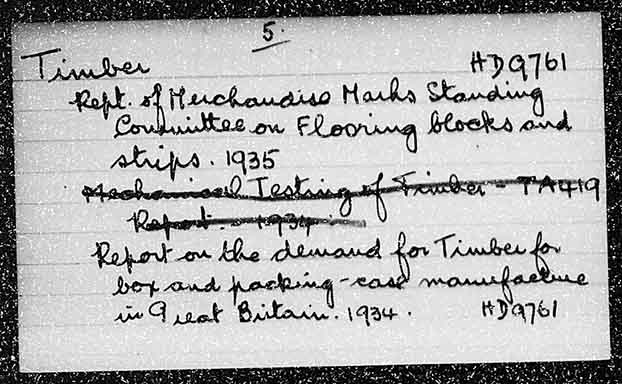 5.
Timber HD9761
Rept. of Merchandise Marks Standing
Committee on Flooring blocks and
strips. 1935
Mechanical Testing of Timber - TA419
Report. - 1934
Report on the demand for Timber for
box and packing-case manufacture
in Great Britain. 1934. HD9761